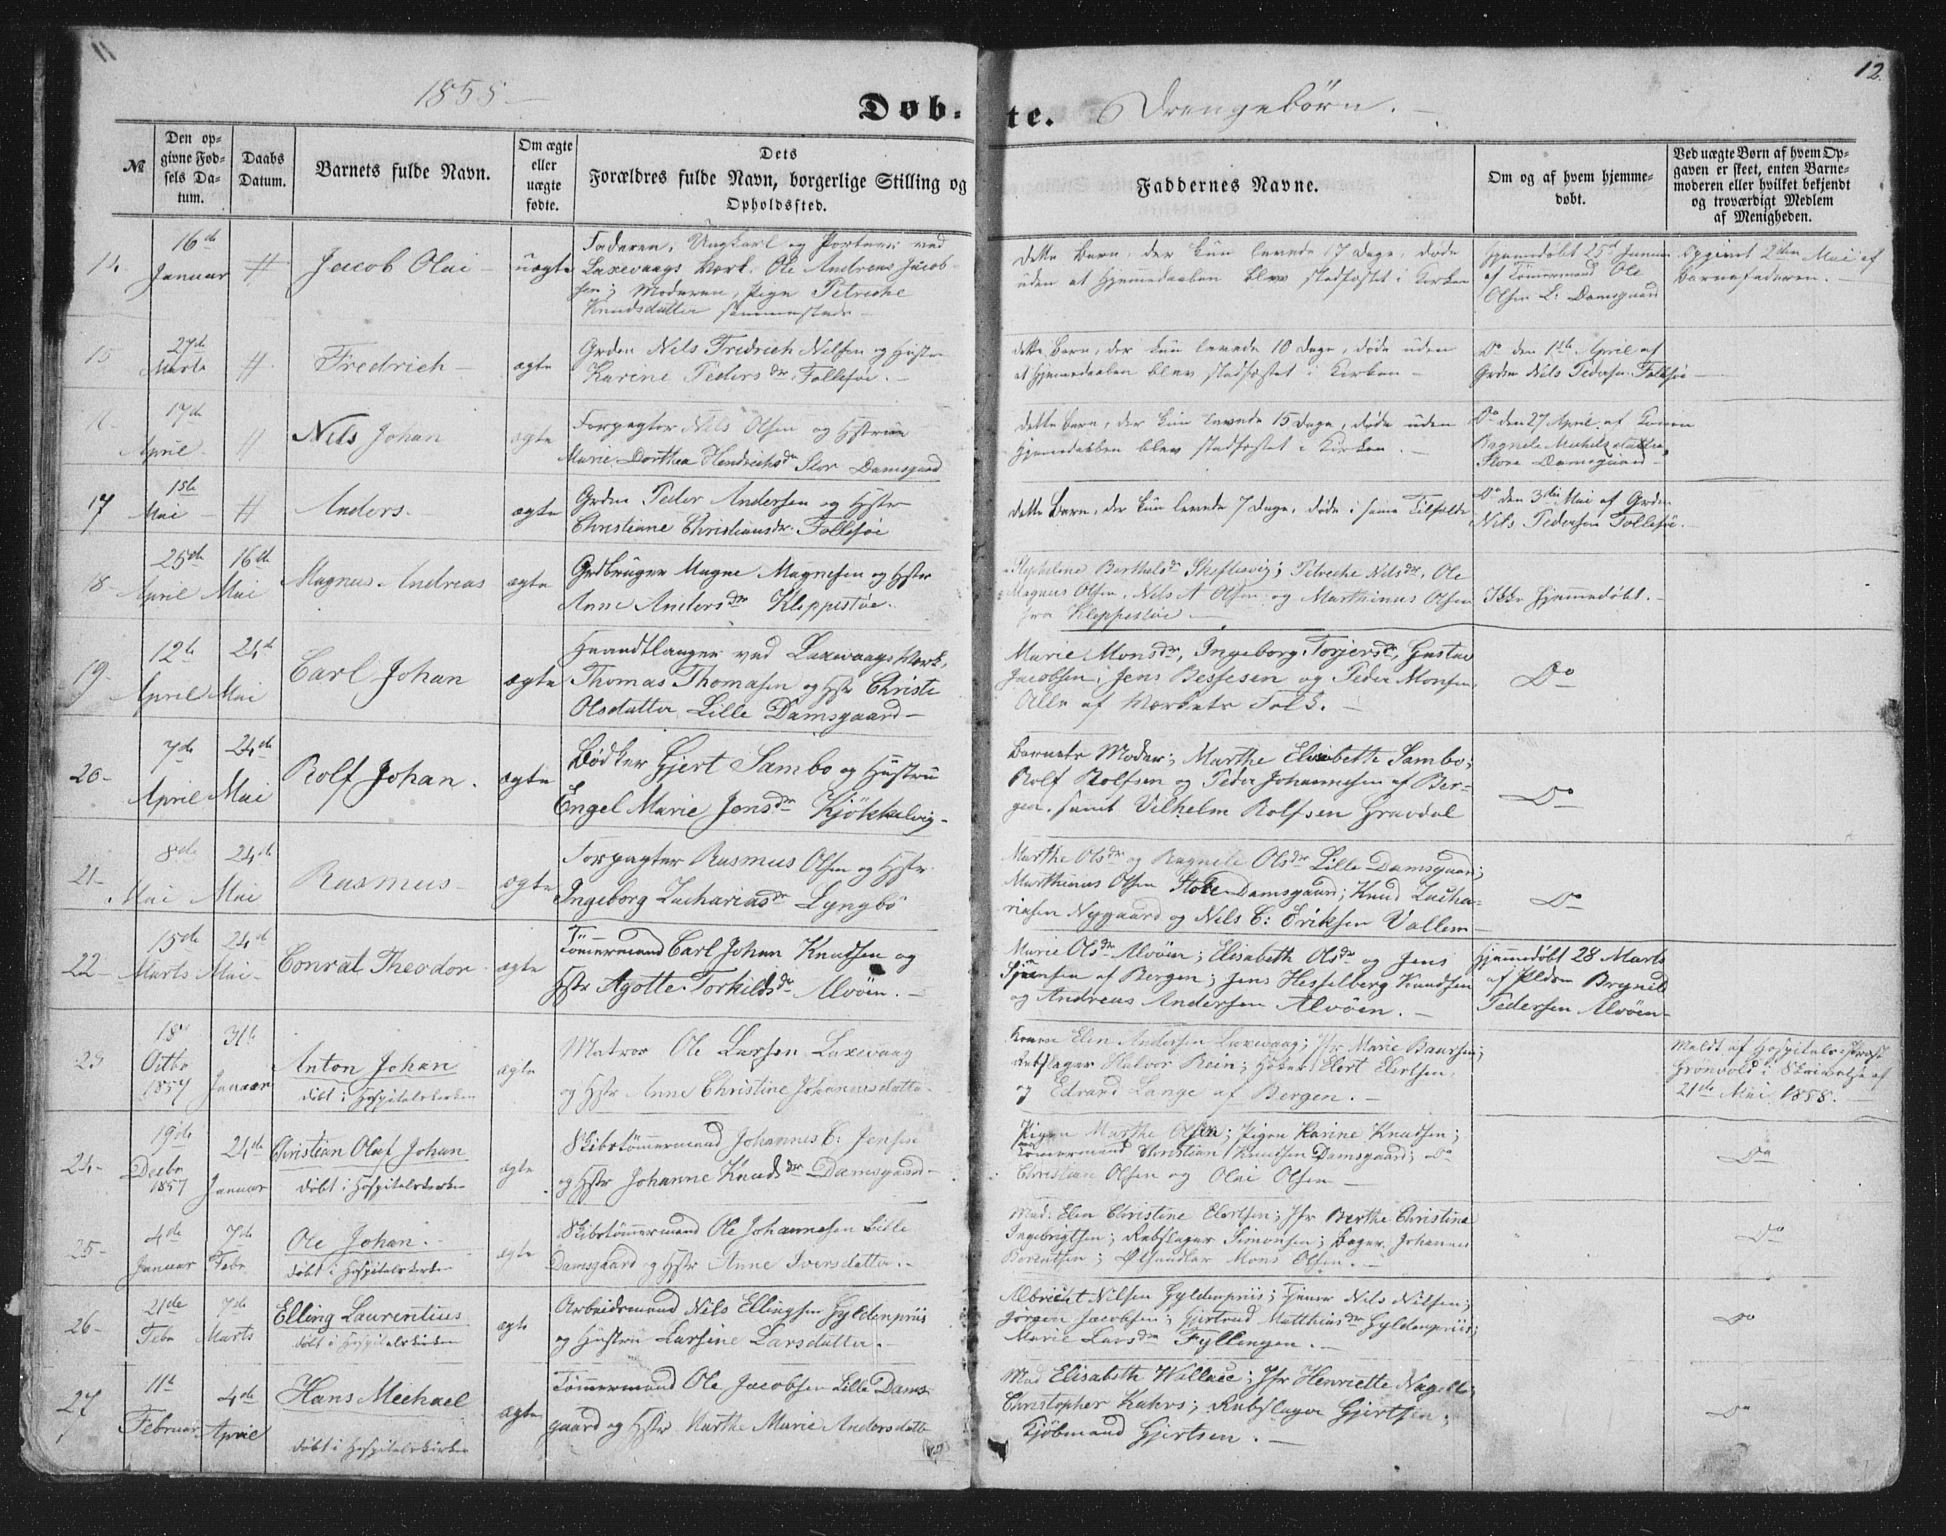 11
12.
1858.
Døb-
te.
Drengebörn.
№
Den op-
givne Fød-
sels Da-
tum.
Daabs
Datum.
Barnets fulde Navn.
Om ægte
eller
uægte
fødte.
Dets
Forældres fulde Navn, borgerlige Stilling og
Opholdssted.
Faddernes Navne.
Om og af hvem hjemme-
døbt.
Ved uægte Børn af hvem Op-
gaven er skeet, enten Barne-
moderen eller hvilket bekjendt
og troværdigt Medlem
af Menigheden.
14.
16de
Januar
#
Jacob Olai
uægte
Faderen, Ungkarl og Portner ved
Laxevaags Værk. Ole Andreas Jacob-
sen; Moderen, Pige Petreche
Knudsdatter sammesteds
Dette Barn, der kun levede 17 Dage, døde
uden at Hjemmedaaben blev stadfæstet i Kirken
Hjemmedöbt 25d Januar
af Tömermand Ole
Olsen L: Damsgaard
Opgivet 2den Mai af
Barnefaderen.
15
27de
Marts
#
Fredrich
ægte
Grdm Nils Fredrich Nilsen og Hustru
Karine Peders dr Follesöe.
dette Barn, der kun levede 10 Dage, døde uden
at Hjemmedaaben blev stadfæstet i Kirken
Do den 1ste April af
Grdm Nils Pedersen Follesöe
17de
April
#
Nils Johan
ægte
Forpagter Nils Olsen og Hstru
Marie Dorthea Hendrichsdr Stor Damsgaard
dette Barn, der kun levede 15 Dage, døde uden
Hjemmedaaben blev stadfæstet i Kirken.
Do den 27 April af Konen
Ragnele Michelsdatter
Store Damsgaard
17
1ste
Mai
#
Anders.
ægte
Grdm Peder Andersen og Hstr
Christiane Christiansdr. Follesöe
dette Barn, der kun levede 7 Dage, døde i samme Tilfælde
Do den 3die Mai af Grdm
Nils Pedersen Follesöe.
18
25de
April
16de
Mai
Magnus Andreas
ægte
Grdbruger Magne Magnesen og Hstr
Anne Andersdr Kleppestöe.
Stepheline Bertheldr Skeftesvig; Petreche Nilsdr, Ole
Magnus Olsen, Nils A Olsen og Marthinus Olsen
fra Kleppestöe
Ikke Hjemmedöbt.
19
12te
April
24de
Mai
Carl Johan
ægte
Haandtlanger ved Laxevaags Værk,
Thomas Thomasen og Hstr Christi
Olsdatter Lille Damsgaard
Marie Monsdr, Ingeborg Torjersdr, Gustav
Jacobsen, Jens Bessesen og Peder Monsen
Alle af Værkets Folk.
Do
20
7de
April
24de
Mai
Rolf Johan.
ægte
Bödker Gjert Sambo og Hustru
Engel Marie Jensdr Kjökkelvig
Barnets Moder; Marthe Elisabeth Sambo;
Rolf Rolfsen og Peder Johannesen af Ber-
gen, samt Vilhelm Rolfsen Gravdal
Do
21
8de
Mai
24de
Mai
Rasmus
ægte
Forpagter Rasmus Olsen og Hstr
Ingeborg Zachariasdr Lyngbö
Marthe Olsdr og Ragnele Olsdr Lille Damsgaard;
Marthinus Olsen Store Damsgaard; Knud Zacha-
riasen Nygaard og Nils C: Eriksen Vallem
Do
22
15de
Marts
24de
Mai
Conrat Theodor
ægte
Tömmermand Carl Johan Knutsen og
Hstr Agotte Torkildsdr Alvöen.
Marie Olsdr Alvöen; Elisabeth Olsdr og Jens
Jensen af Bergen; Jens Hesselberg Knudsen
og Andreas Andersen Alvöen.
Hjemmedöbt 28 Marts
af Pldsm Brynild
Pedersen Alvöen
23
18de
Octbr
1857
31te
Januar
Anton Johan
döbt i Hospitalskirken
ægte
Matros Ole Larsen Laxevaag
og Hstr Anne Christine Johannesdatter
Konen Elen Andersen Laxevaag; Jfr Marie Baarsen;
Rebslager Halvor Rein; Höker Elert Elertsen
og Edvard Lange af Bergen.
Meldt af Hospitalspræst
Grönvold i Skrivelse af
21de Mai 1858.
24
19de
Decbr
1857
24de
Januar
Christian Olaf Johan
döbt i Hospitalskirken
ægte
Skibstömmermand Johannes C: Jensen
og Hstr Johanne Knudsdr Damsgaard
Pigen Marthe Olsen; Pigen Karine Knudsen;
Tömmermand Christian Knudsen Damsgaard; Do
Christian Olsen og Olai Olsen
Do
25
4de
Januar
7de
Febr
Ole Johan.
döbt i Hospitalskirken
ægte
Skibstömmermand Ole Johannesen Lille
Damsgaard og Hstr Anne Iversdatter.
Mad: Elen Christine Elertsen; Jfr Berthe Christine
Ingebrigtsen; Rebslager Simonsen; Bager Johannes
Berentsen; Ölhandler Mons Olsen.
Do
26
21de
Febr
7de
Marts
Elling Laurentius
döbt i Hospitalskirken
ægte
Arbeidsmand Nils Ellingsen Gyldenpriis
og Hustru Larsine Larsdatter.
Albricht Nilsen Gyldenpriis; Tjener Nils Nilsen;
Jörgen Jacobsen; Gjertrud Matthiasdr Gyldenpriis;
Marie Larsdr Fyllingen.
Do
27
11te
Februar
4de
April
Hans Meehael
döbt i Hospitalskirken
ægte
Tömmermand Ole Jacobsen Lille Dams-
gaard og Hstr Marthe Marie Andersdatter
Mad Elisabeth Wallace; Jfr Henriette Nagel;
Christopher Kahrs; Rebslager Gjertsen;
Kjöbmand Gjertsen.
Do